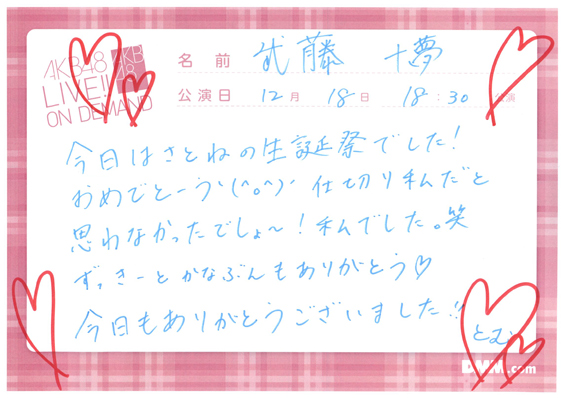 AKB48
LIVE!!
ON DEMAND
AKB
48
名前 武藤 十夢
公演日 12月 18日 18:30 公演
今日はさとねの生誕祭でした!
おめでとーう\(^o^)/ 仕切り私だと
思わなかったでしょ〜!私でした。笑
ずっきーとかなぶんもありがとう♡
今日もありがとうございました!!
とむ
DMM.com